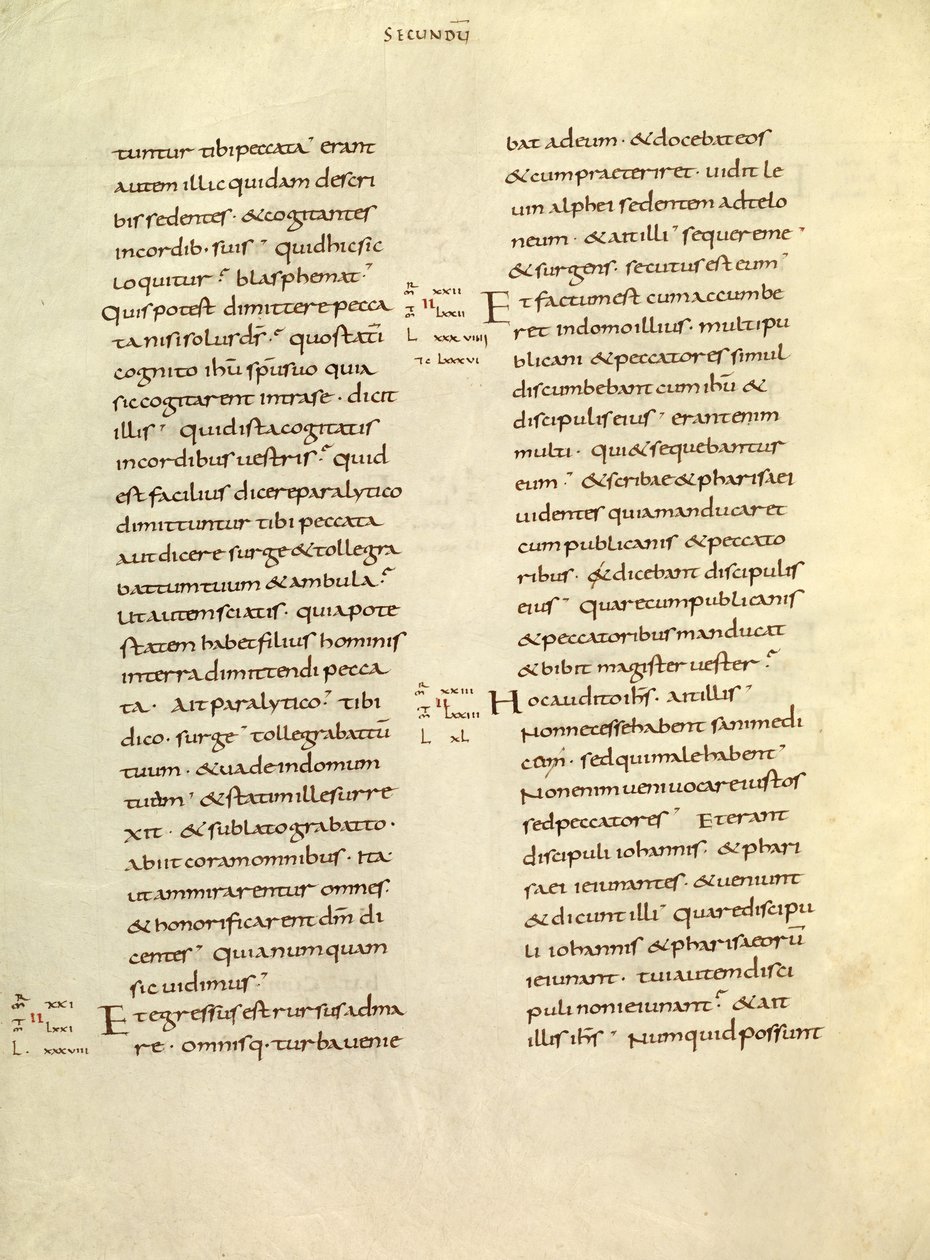 SECUNDŪ
tuntur tibi peccata erant
autem illic quidam descri
bis sedentes · & cogitantes
in cordib· suis quid hic sic
loquitur blasphemat
Quis potest dimittere pecca
ta nisi solus ds̄ quo statī
cognito ihū spū suo quia
sic cogitarent intra se · dicit
illis quid ista cogitatis
in cordibus uestris quid
est facilius dicere paralytico
dimittuntur tibi peccata
aut dicere surge & tolle gra
battum tuum & ambula
Ut autem sciatis · quia pote
statem habet filius hominis
in terra dimittendi pecca
ta · Ait paralytico tibi
dico · surge tolle grabattū
tuum · & uade in domum
tuam & statim ille surre
xit · & sublato grabatto ·
abiit coram omnibus · Ita
ut ammirarentur omnes
& honorificarent dm̄ di
centes Quia numquam
sic uidimus
R XXI
m̄
T II LXXI
m̄
L · XXXVIII
Et egressus est rursus ad ma
re · omnisq· turba uenie
bat ad eum · & docebat eos
& cum praeteriret · uidit le
uin alphei sedentem ad telo
neum · & ait illi sequere me
& surgens · secutus est eum
R XXII
m̄
T II LXXII
m̄
L XXXVIIII
Tc LXXXVI
Et factum est cum accumbe
ret in domo illius · multi pu
blicani & peccatores simul
discumbebant cum ihū &
discipulis eius erant enim
multi · qui & sequebantur
eum & scribae & pharisaei
uidentes quia manducaret
cum publicanis & peccato
ribus · & dicebant discipulis
eius Quare cum publicanis
& peccatoribus manducat
& bibit magister uester
R XXIII
m̄
T II LXXIII
m̄
L XL
Hoc audito ih̄s · ait illis
Non necesse habent sani medi
cum · sed qui male habent
Non enim ueni uocare iustos
sed peccatores Et erant
discipuli iohannis · & phari
saei ieiunantes · & ueniunt
& dicunt illi quare discipu
li iohannis & pharisaeorū
ieiunant · tui autem disci
puli non ieiunant & ait
illis ih̄s Numquid possunt